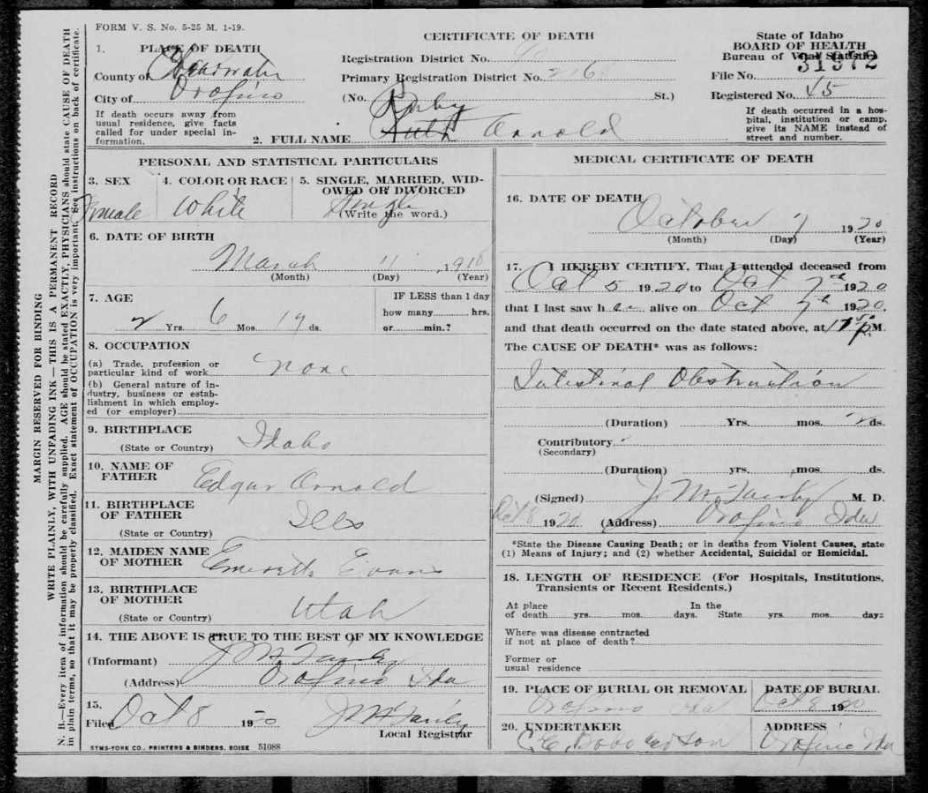 FORM V. S. No. 5-25 M. 1-19.
CERTIFICATE OF DEATH
State of Idaho
BOARD OF HEALTH
Bureau of Vital Statistics
1. PLACE OF DEATH
County of Clearwater
City of Orofino
If death occurs away from
usual residence, give facts
called for under special in-
formation.
Registration District No.
Primary Registration District No.
(No. St.)
File No. 31972
Registered No. 45
If death occurred in a hos-
pital, institution or camp,
give its NAME instead of
street and number.
Ruby
2. FULL NAME Ruth Arnold
MARGIN RESERVED FOR BINDING
WRITE PLAINLY, WITH UNFADING INK—THIS IS A PERMANENT RECORD
N. B.—Every item of information should be carefully supplied. AGE should be stated EXACTLY, PHYSICIANS should state CAUSE OF DEATH
in plain terms, so that it may be properly classified. Exact statement of OCCUPATION is very important. See instructions on back of certificate.
PERSONAL AND STATISTICAL PARTICULARS
3. SEX
Female
4. COLOR OR RACE
White
5. SINGLE, MARRIED, WID-
OWED OR DIVORCED
Single
(Write the word.)
6. DATE OF BIRTH
March 11, 1918
(Month) (Day) (Year)
7. AGE
2 Yrs. 6 Mos. 19 ds.
IF LESS than 1 day
how many hrs.
or min.?
8. OCCUPATION
(a) Trade, profession or
particular kind of work None
(b) General nature of in-
dustry, business or estab-
lishment in which employ-
ed (or employer)
9. BIRTHPLACE
(State or Country) Idaho
10. NAME OF
FATHER Edgar Arnold
11. BIRTHPLACE
OF FATHER Ills
(State or Country)
12. MAIDEN NAME
OF MOTHER Evans
13. BIRTHPLACE
OF MOTHER Utah
(State or Country)
14. THE ABOVE IS TRUE TO THE BEST OF MY KNOWLEDGE
(Informant) J M Fairly
(Address) Orofino Ida
15.
Filed Oct 8 1920 J M Fairly
Local Registrar
SYMS-YORK CO., PRINTERS & BINDERS, BOISE 51088
MEDICAL CERTIFICATE OF DEATH
16. DATE OF DEATH
October 7 1920
(Month) (Day) (Year)
17. I HEREBY CERTIFY, That I attended deceased from
Oct 5 1920 to Oct 7th 1920
that I last saw her alive on Oct 7th 1920,
and that death occurred on the date stated above, at M.
The CAUSE OF DEATH* was as follows:
Intestinal Obstruction
(Duration) Yrs. mos. ds.
Contributory
(Secondary)
(Duration) yrs. mos. ds.
(Signed) J M Fairly M. D.
Oct 8 1920 (Address) Orofino Ida
*State the Disease Causing Death; or in deaths from Violent Causes, state
(1) Means of Injury; and (2) whether Accidental, Suicidal or Homicidal.
18. LENGTH OF RESIDENCE (For Hospitals, Institutions,
Transients or Recent Residents.)
At place In the
of death yrs. mos. days. State yrs. mos. days
Where was disease contracted
if not at place of death?
Former or
usual residence
19. PLACE OF BURIAL OR REMOVAL
Orofino Ida
DATE OF BURIAL
Oct 1920
20. UNDERTAKER
ADDRESS
Orofino Ida